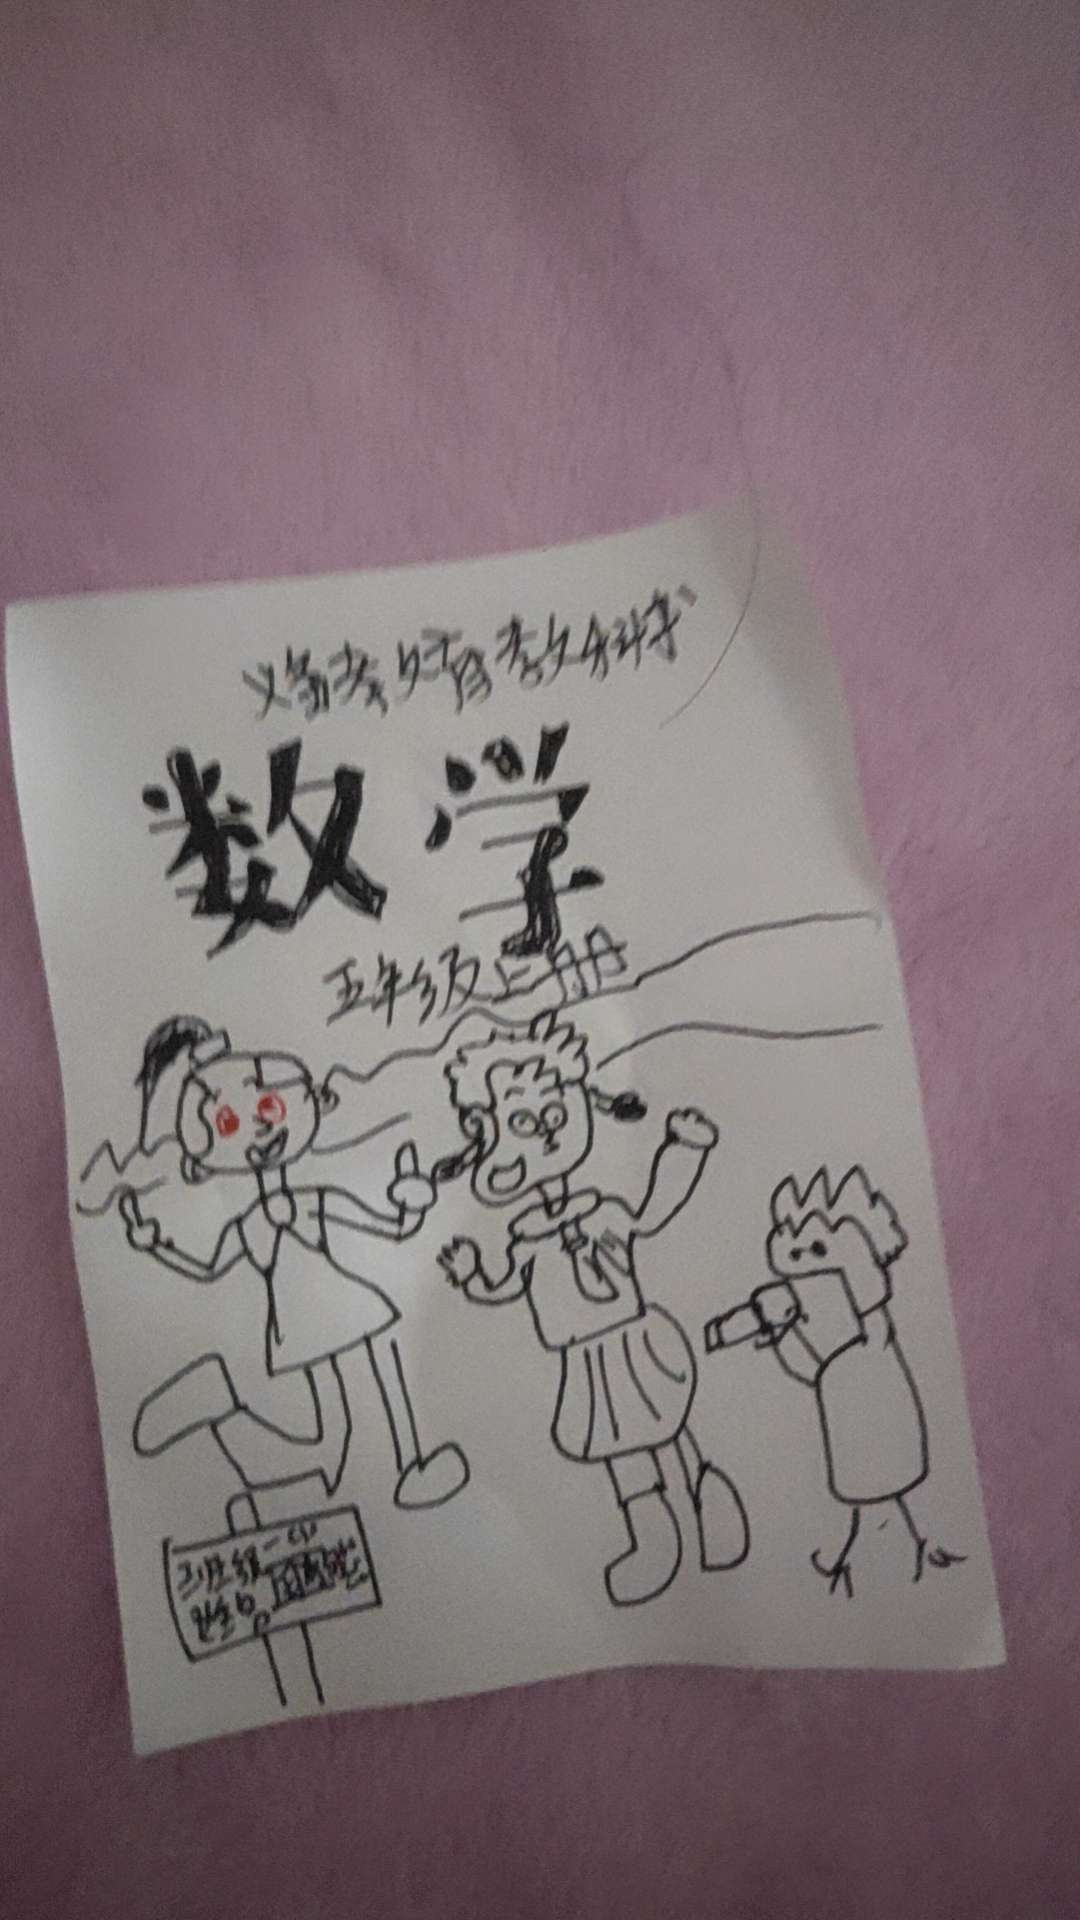 义务教育教科书
数学
五年级上册
班级